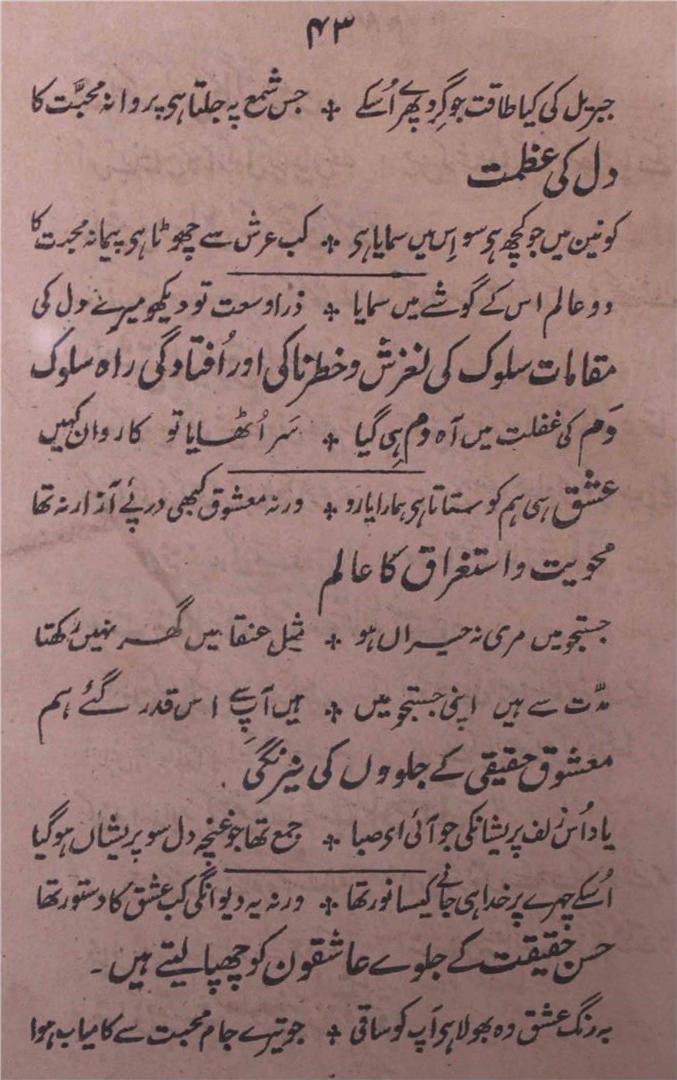 ۴۳
جبریل کی کیا طاقت جو گرد پھرے اُسکے ÷ جس شمع پہ جلتا ہی پروانہ محبّت کا
دل کی عظمت
کونین میں جو کچھ ہی سو اِس میں سمایا ہی ÷ کب عرش سے چھوٹا ہی پیمانہ محبت کا
دو عالم اس کے گوشے میں سمایا ÷ ذرا وسعت تو دیکھو میرے دل کی
مقامات سلوک کی لغزش و خطرناکی اور اُفتادگی راہ سلوک
دَم کی غفلت میں آہ دم ہی گیا ÷ سَر اُٹھایا تو کاروان کہیں
عشق ہی ہم کو ستاتا ہی ہمارا یارو ÷ ورنہ معشوق کبھی درپئے آزار نہ تھا
محویت و استغراق کا عالم
جستجو میں مری نہ حیراں ہو ÷ مثل عنقا میں گھر نہیں رکھتا
مدّت سے ہیں اپنی جستجو میں ÷ ہیں آپ سے اس قدر گئے ہم
معشوق حقیقی کے جلووں کی نیرنگی
یاد اُس زلف پریشانکی جو آئی ای صبا ÷ جمع تھا جو غنچہ دل سو پریشاں ہو گیا
اُسکے چہرے پر خدا ہی جانے کیسا نور تھا ÷ ورنہ یہ دیوانگی کب عشق کا دستور تھا
حسن حقیقت کے جلوے عاشقون کو چھپا لیتے ہیں۔
بہ رنگ عشق وہ بھولا ہی آپ کو ساقی ÷ جو تیرے جام محبت سے کامیاب ہوا